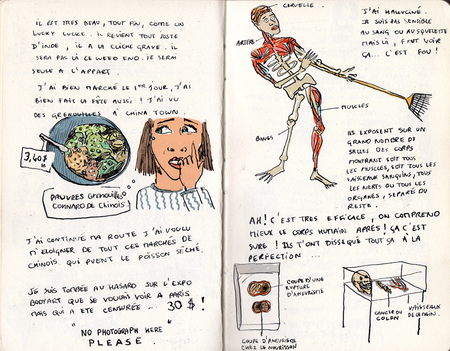 IL EST TRES BEAU, TOUT FIN, COMME UN
LUCKY LUCKE. IL REVIENT TOUT JUSTE
D'INDE, IL A LA CLICHE GRAVE. IL
SERA PAS LÀ CE WEEK END. JE SERAI
SEULE A L'APPART.
J'AI BIEN MARCHÉ LE 1ER JOUR, J'AI
BIEN FAIT LA FÊTE AUSSI! J'AI VU
DES GRENOUILLES A CHINA TOWN.
3,40$
PAUVRES GRENOUILLES
CONNARD DE CHINOIS
J'AI CONTINUÉ MA ROUTE J'AI VOULU
M'ELOIGNER DE TOUT CES MARCHÉS DE
CHINOIS QUI PUENT LE POISSON SÉCHÉ.
JE SUIS TOMBÉE AU HASARD SUR L'EXPO
BODYART QUE JE VOULAIS VOIR A PARIS
MAIS QUI A ETE CENSURÉE... 30$!
"NO PHOTOGRAPH HERE"
PLEASE.
CERVELLE
ARTÈRE
MUSCLES
BONES
J'AI HALLUCINÉ.
JE SUIS PAS SENSIBLE
AU SANG OU AU SQUELETTE
MAIS LÀ, FAUT VOIR
ÇA... C'EST FOU!
ILS EXPOSENT SUR UN
GRAND NOMBRE DE
SALLES DES CORPS
MONTRANT SOIT TOUS
LES MUSCLES, SOIT TOUS LES
VAISSEAUX SANGUINS, TOUS
LES NERFS OU TOUS LES
ORGANES, SEPARÉ DU
RESTE.
AH! C'EST TRES EFFICACE, ON COMPREND
MIEUX LE CORPS HUMAIN APRÈS! ÇA C'EST
SURE! ILS T'ONT DISSEQUÉ TOUT ÇA À LA
PERFECTION...
COUPE D'UNE
RUPTURE
D'ANEVRISME
COUPE D'ANEVRISME
CHEZ LE NOURISSON
CANCER DU
COLON
VAISSEAUX
DE LA MAIN.